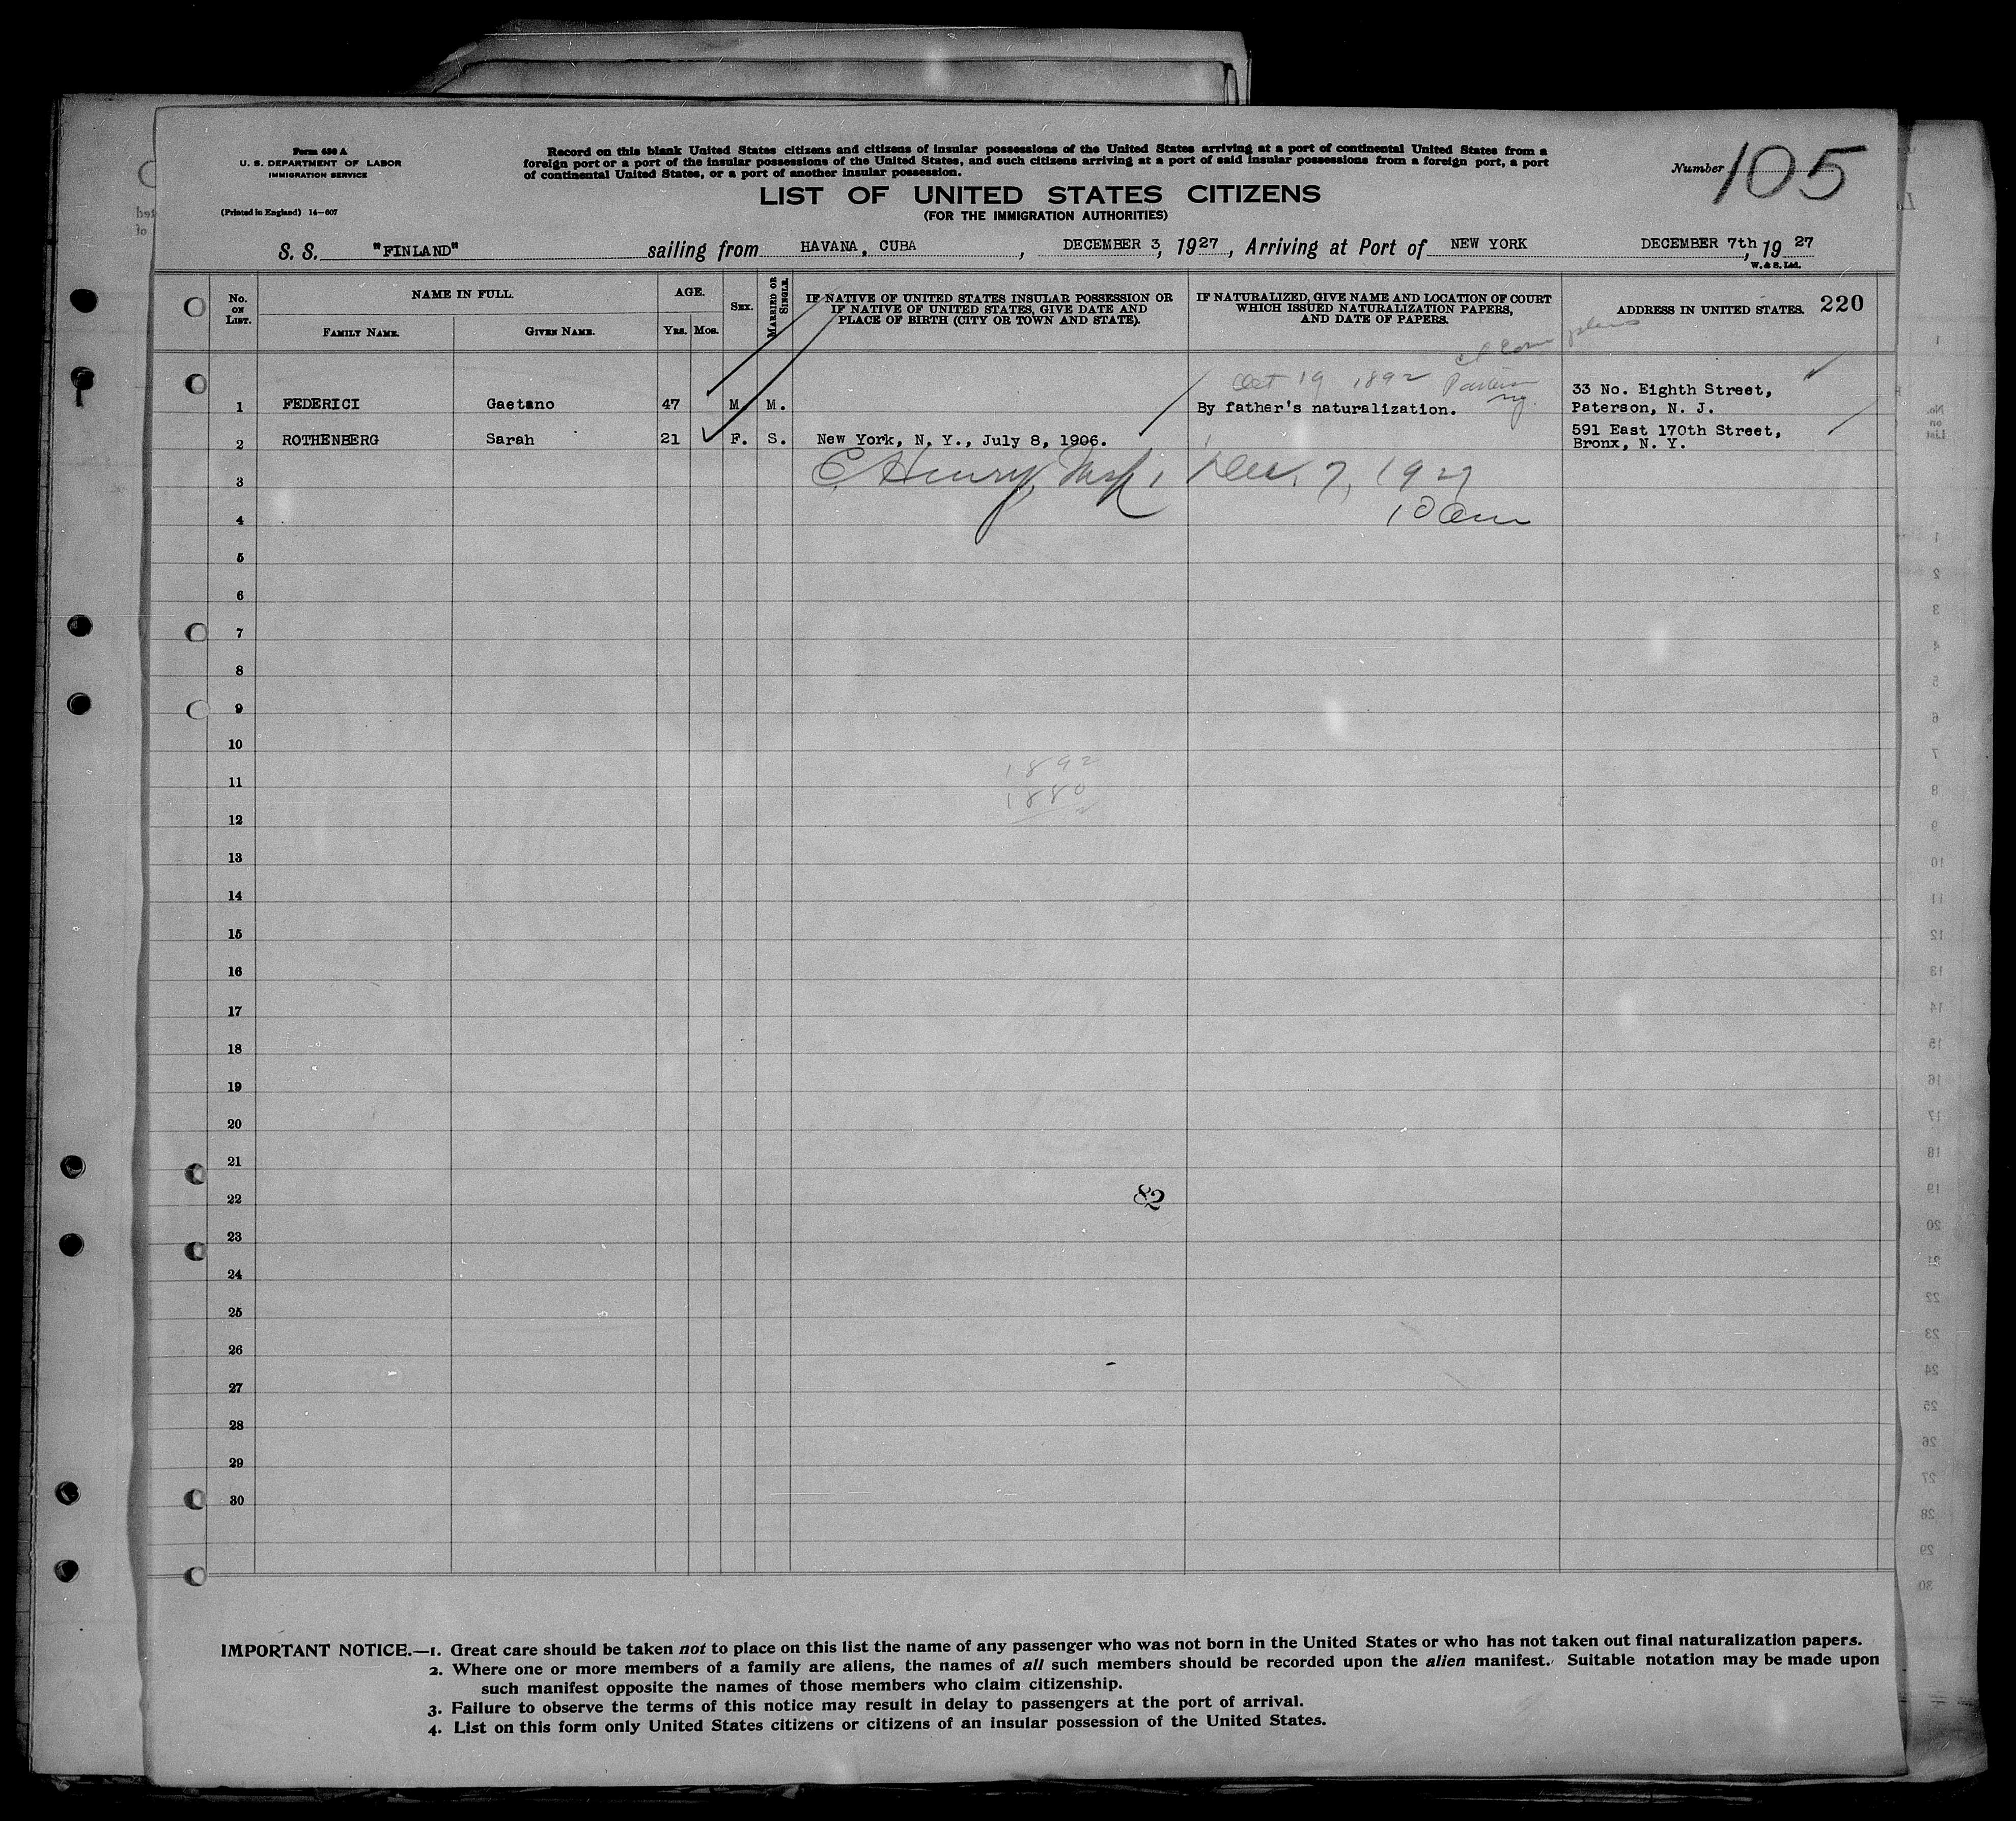 Form 630 A
U. S. DEPARTMENT OF LABOR
IMMIGRATION SERVICE
(Printed in England) 14—607
Record on this blank United States citizens and citizens of insular possessions of the United States arriving at a port of continental United States from a
foreign port or a port of the insular possessions of the United States, and such citizens arriving at a port of said insular possessions from a foreign port, a port
of continental United States, or a port of another insular possession.
Number 105
LIST OF UNITED STATES CITIZENS
(FOR THE IMMIGRATION AUTHORITIES)
S. S. "FINLAND" sailing from HAVANA, CUBA, DECEMBER 3, 1927, Arriving at Port of NEW YORK DECEMBER 7th, 1927
W. & S. Ltd.
No. ON LIST.
NAME IN FULL.
FAMILY NAME. GIVEN NAME.
AGE.
YRS. MOS.
SEX.
MARRIED OR SINGLE.
IF NATIVE OF UNITED STATES INSULAR POSSESSION OR
IF NATIVE OF UNITED STATES, GIVE DATE AND
PLACE OF BIRTH (CITY OR TOWN AND STATE).
IF NATURALIZED, GIVE NAME AND LOCATION OF COURT
WHICH ISSUED NATURALIZATION PAPERS,
AND DATE OF PAPERS.
ADDRESS IN UNITED STATES. 220
Oct 19 1892
1 FEDERICI Gaetano 47 M. M. By father's naturalization. 33 No. Eighth Street,
Paterson, N. J.
2 ROTHENBERG Sarah 21 F. S. New York, N. Y., July 8, 1906. 591 East 170th Street,
Bronx, N. Y.
3 Dec. 7, 1927
4 10 am
5
6
7
8
9
10
11 1892
1880
12
13
14
15
16
17
18
19
20
21
22 82
23
24
25
26
27
28
29
30
IMPORTANT NOTICE.—1. Great care should be taken not to place on this list the name of any passenger who was not born in the United States or who has not taken out final naturalization papers.
2. Where one or more members of a family are aliens, the names of all such members should be recorded upon the alien manifest. Suitable notation may be made upon
such manifest opposite the names of those members who claim citizenship.
3. Failure to observe the terms of this notice may result in delay to passengers at the port of arrival.
4. List on this form only United States citizens or citizens of an insular possession of the United States.